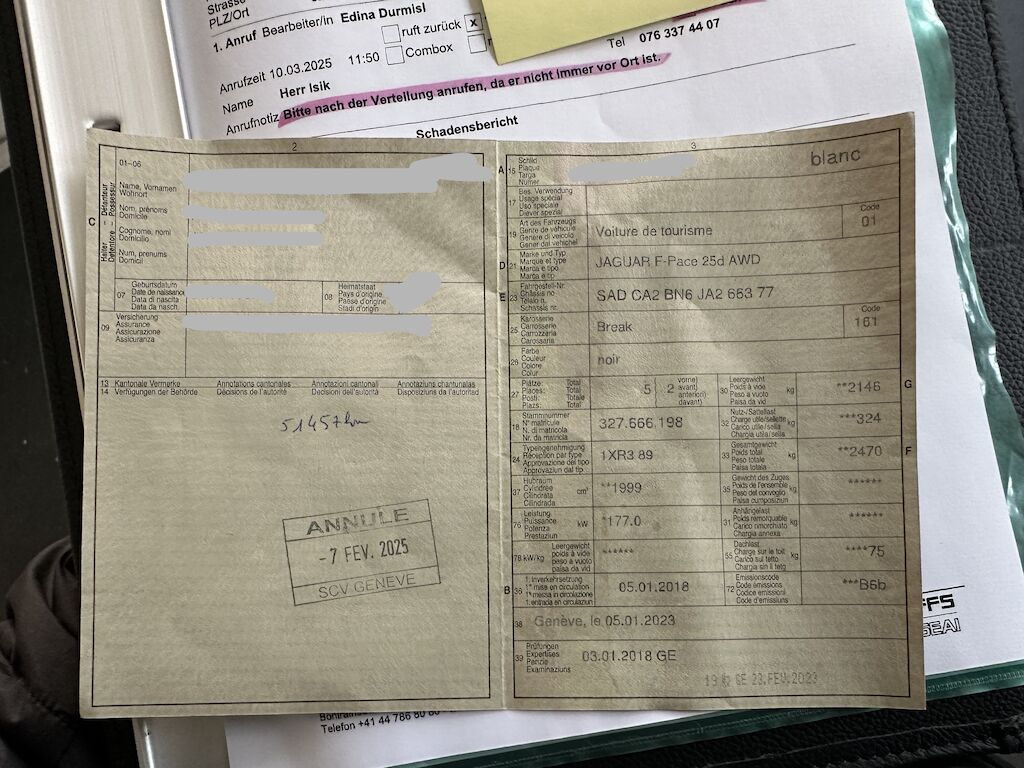 Strasse
PLZ/Ort
1. Anruf Bearbeiter/in Edina Durmisl
ruft zurück x
Combox
Tel 076 337 44 07
Anrufzeit 10.03.2025 11:50
Name Herr Isik
Anrufnotiz Bitte nach der Verteilung anrufen, da er nicht immer vor Ort ist.
Schadensbericht
2
01-06
C
Halter Détenteur
Detentore Possessur
Name, Vornamen
Wohnort
Nom, prénoms
Domicile
Cognome, nomi
Domicilio
Num, prenums
Domicil
07 Geburtsdatum
Date de naissance
Data di nascita
Data da nasch.
08 Heimatstaat
Pays d'origine
Paese d'origine
Stadi d'origin
09 Versicherung
Assurance
Assicurazione
Assicuranza
13 Kantonale Vermerke Annotations cantonales Annotazioni cantonali Annotaziuns chantunalas
14 Verfügungen der Behörde Décisions de l'autorité Decisioni dell'autorità Disposiziuns da l'autoritad
51457km
ANNULE
-7 FEV. 2025
SCV GENEVE
3
A 15 Schild
Plaque
Targa
Numer
blanc
17 Bes. Verwendung
Usage spécial
Uso speciale
Diever spezial
19 Art des Fahrzeugs
Genre de véhicule
Genere di veicolo
Gener dal vehichel
Voiture de tourisme
Code
01
D 21 Marke und Typ
Marque et type
Marca e tipo
Marca e tip
JAGUAR F-Pace 25d AWD
E 23 Fahrgestell-Nr.
Châssis no
Telaio n.
Schassis nr.
SAD CA2 BN6 JA2 653 77
25 Karosserie
Carrosserie
Carrozzeria
Carossaria
Break
Code
161
26 Farbe
Couleur
Colore
Colur
noir
27 Plätze: Total
Places: Total
Posti: Totale
Plazs: Total
5 2
vorne)
avant)
anteriori)
davant)
30 Leergewicht
Poids à vide
Peso a vuoto
Paisa da vid
kg
**2146
G
18 Stammnummer
N° matricule
N. di matricola
Nr. da matricla
327.666.198
32 Nutz-/Sattellast
Charge utile/sellette
Carico utile/sella
Chargia utila/sella
kg
***324
24 Typengenehmigung
Réception par type
Approvazione del tipo
Approvaziun dal tip
1XR3 89
33 Gesamtgewicht
Poids total
Peso totale
Paisa totala
kg
**2470
F
37 Hubraum
Cylindrée
Cilindrata
Cilindrada
cm³
**1999
35 Gewicht des Zuges
Poids de l'ensemble
Peso del convoglio
Paisa cumposiziun
kg
******
76 Leistung
Puissance
Potenza
Prestaziun
kW
*177.0
31 Anhängelast
Poids remorquable
Carico rimorchiato
Chargia annexa
kg
******
78 kW/kg Leergewicht
poids à vide
peso a vuoto
paisa da vid
******
55 Dachlast
Charge sur le toit
Carico sul tetto
Chargia sin il tetg
kg
****75
B 36 1. Inverkehrsetzung
1re mise en circulation
1a messa in circolazione
1. entrada en circulaziun
05.01.2018
72 Emissionscode
Code émissions
Codice emissioni
Code d'emissiuns
***B6b
38 Genève, le 05.01.2023
39 Prüfungen
Expertises
Perizie
Examinaziuns
03.01.2018 GE
GE 23.FEV.2023
Telefon +41 44 786 80